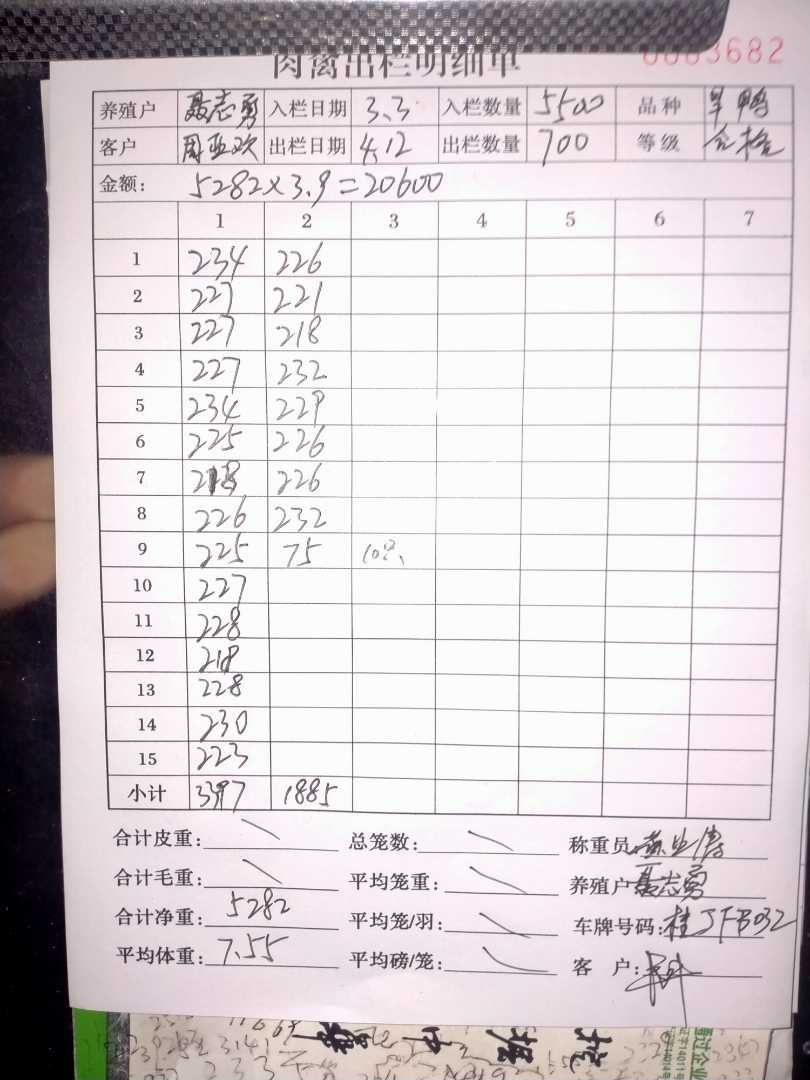 肉禽出栏明细单 0003682
养殖户 聂志勇 入栏日期 3.3 入栏数量 5500 品种 旱鸭
客户 周亚欢 出栏日期 4.12 出栏数量 700 等级 合格
金额: 5282×3.9=20600
1 2 3 4 5 6 7
1 234 226
2 227 221
3 227 218
4 227 232
5 234 229
6 225 226
7 218 226
8 226 232
9 225 75
10 227
11 228
12 218
13 228
14 230
15 223
小计 3397 1885
合计皮重: 总笼数: 称重员
合计毛重: 平均笼重: 养殖户 聂志勇
合计净重: 5282 平均笼/羽: 车牌号码: 桂JFB032
平均体重: 7.55 平均磅/笼: 客 户: